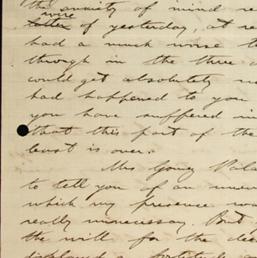 the anxiety of mind re
wire
letter of yesterday, at re
had a much worse t
through in the three d
could get absolutely n
had happened to you
you have suffered in
that this part of the
least is over.
Mrs Gomez Pala
to tell you of an unex
which my presence wa
really unnecessary. But
the will for the dee